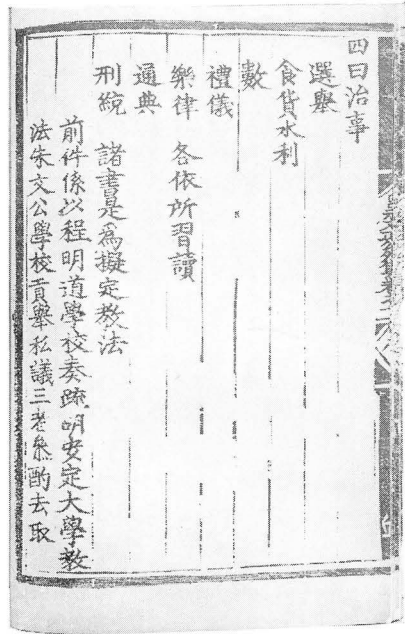 四曰治事
選舉
食貨水利
數
禮儀
樂律 各依所習讀
通典
刑統 諸書是為擬定教法
前件係以程明道學校奏疏明安定大學教
法朱文公學校貢舉私議三者叅酌去取